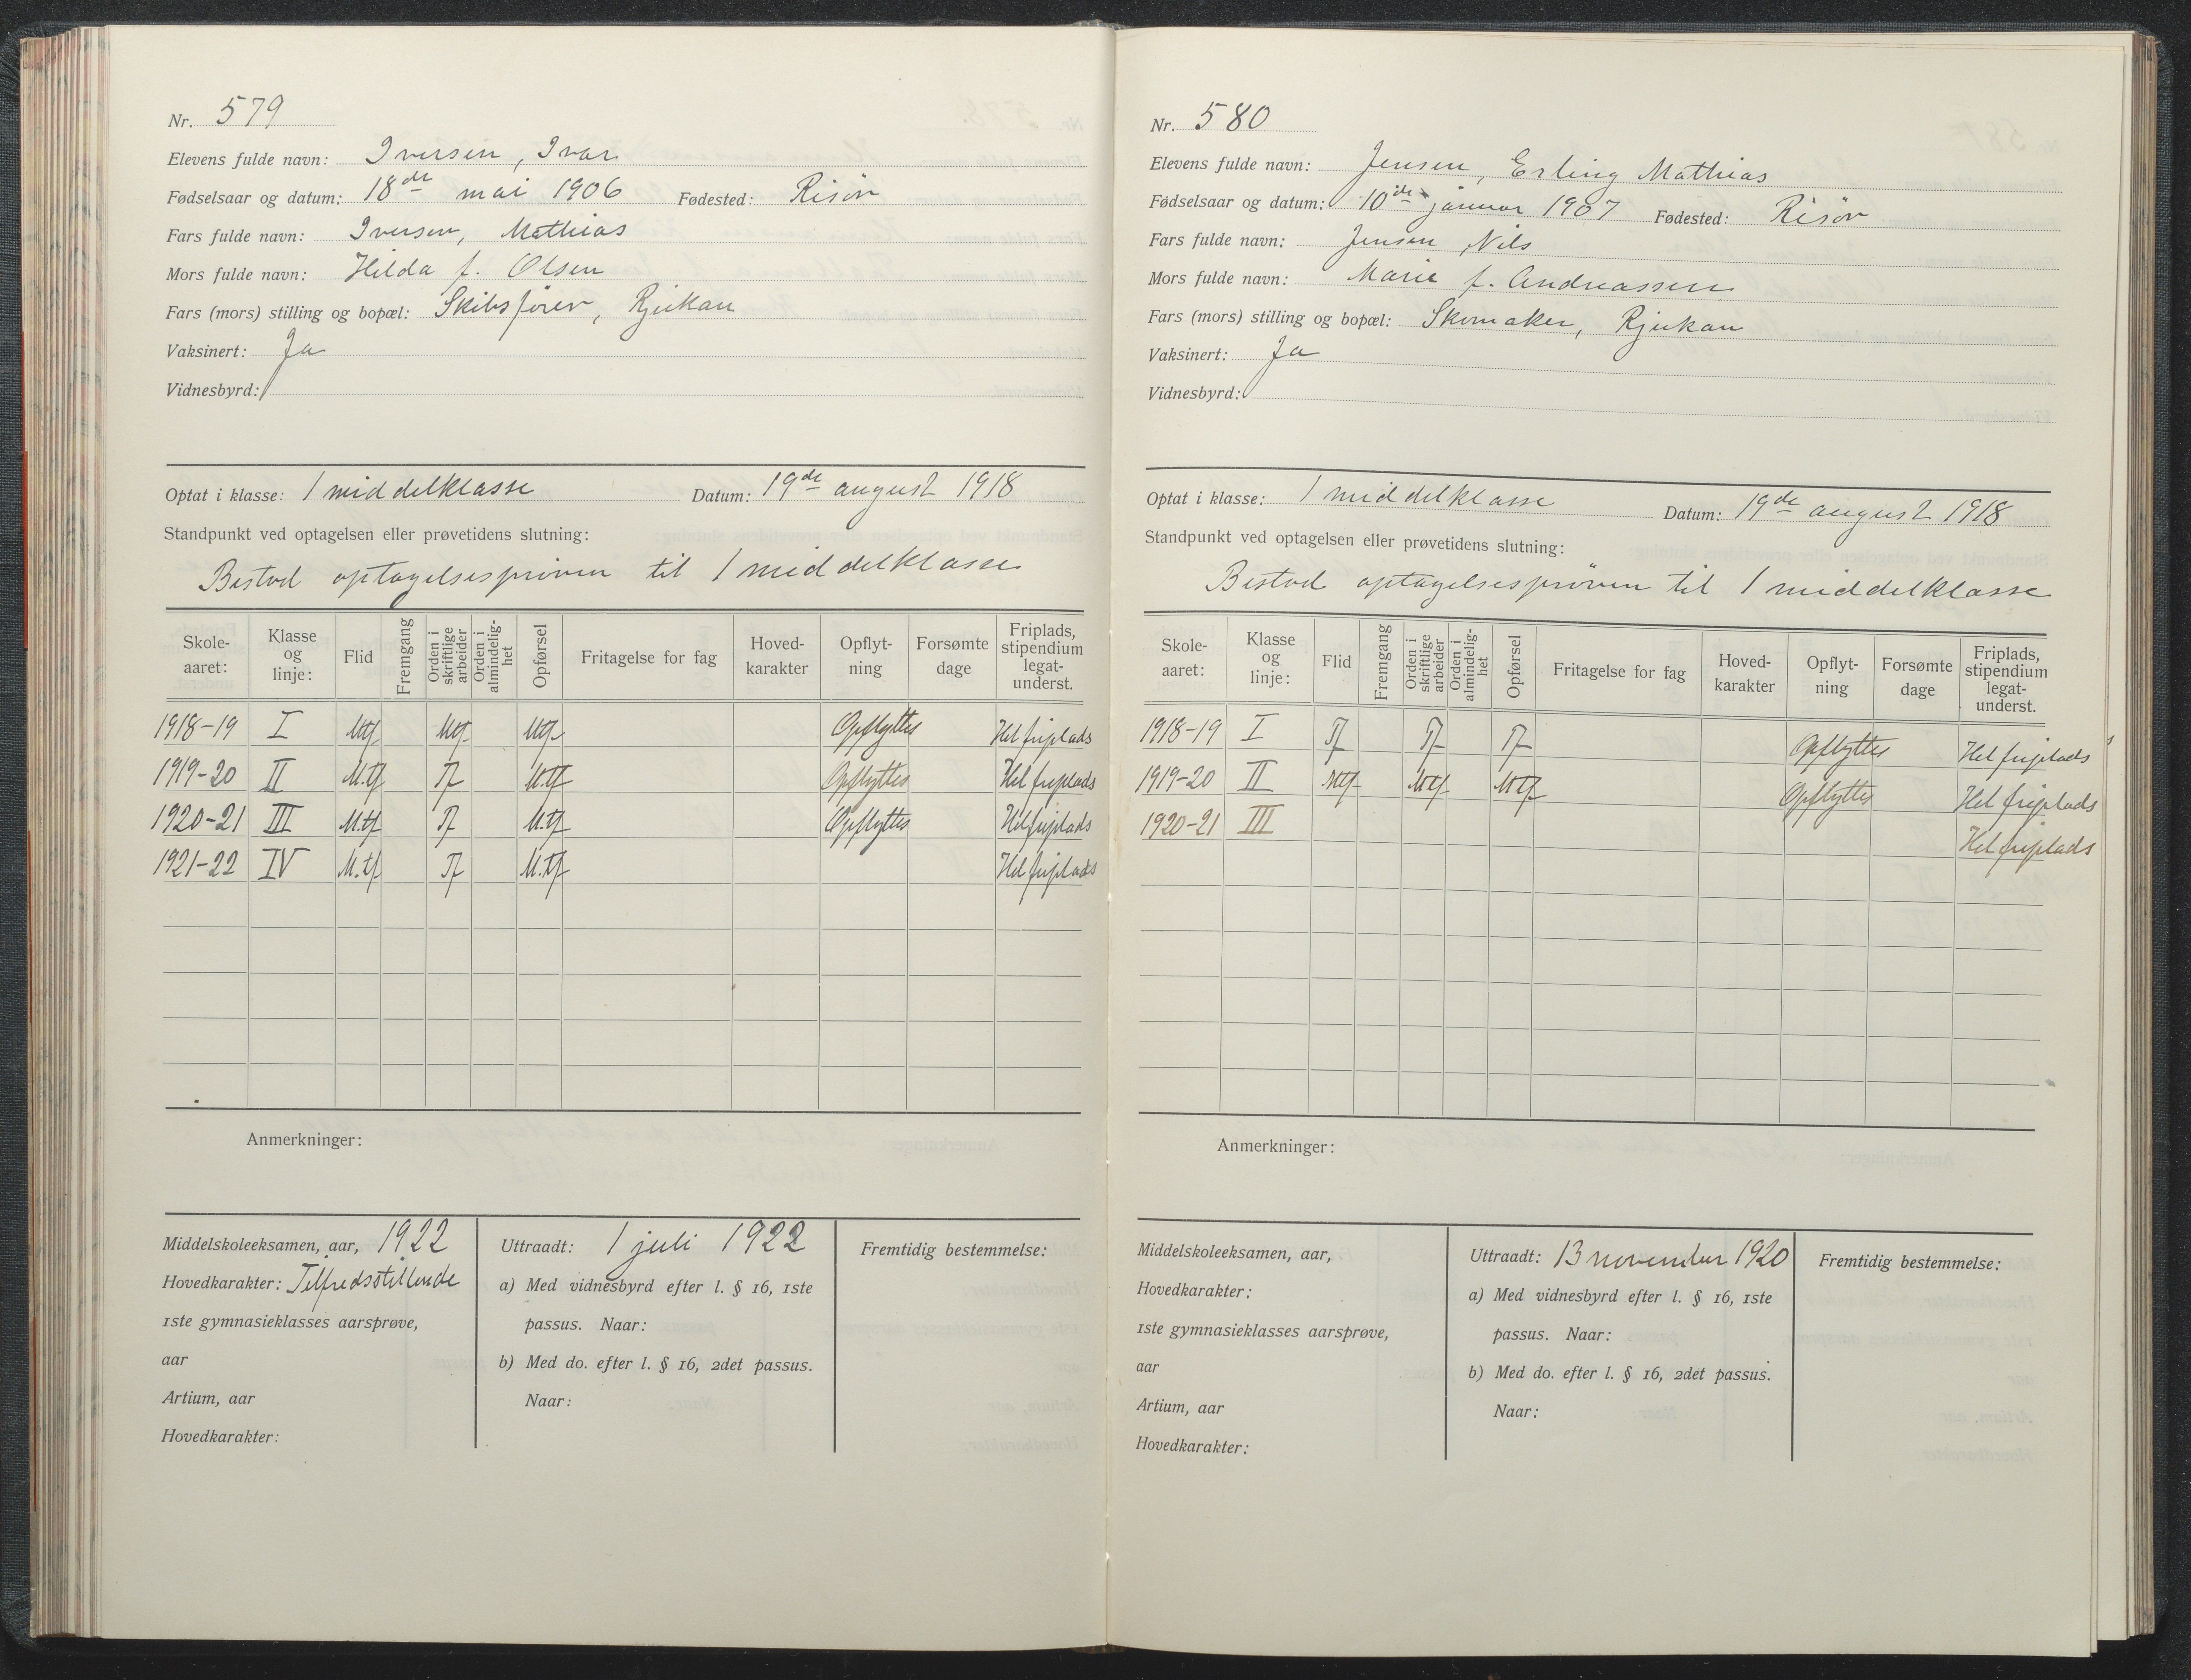 Nr. 579
Elevens fulde navn: Iversen, Ivar
Fødselsaar og datum: 18de mai 1906 Fødested: Risör
Fars fulde navn: Iversen, Mathias
Mors fulde navn: Hilda f. Olsen
Fars (mors) stilling og bopæl: Skibsförer, Rjukan
Vaksinert: Ja
Vidnesbyrd:
Optat i klasse: 1 middelklasse Datum: 19de august 1918
Standpunkt ved optagelsen eller prøvetidens slutning:
Bestod optagelsespröven til 1 middelklasse
Skole-aaret: Klasse og linje: Flid Fremgang Orden i skriftlige arbeider Orden i almindelig-het Opførsel Fritagelse for fag Hoved-karakter Opflyt-ning Forsømte dage Friplads, stipendium legat-underst.
1918-19 I Mtf Mtf Mtf Opflyttes Hel friplads
1919-20 II M.tf Tf M.tf Opflyttes Hel friplads
1920-21 III M.tf Tf M.tf Opflyttes Hel friplads
1921-22 IV M.tf Tf M.tf Hel friplads
Anmerkninger:
Middelskoleeksamen, aar, 1922
Hovedkarakter: Tilfredsstillende
1ste gymnasieklasses aarsprøve,
aar
Artium, aar
Hovedkarakter:
Uttraadt: 1 juli 1922
a) Med vidnesbyrd efter l. § 16, 1ste
passus. Naar:
b) Med do. efter l. § 16, 2det passus.
Naar:
Fremtidig bestemmelse:
Nr. 580
Elevens fulde navn: Jensen, Erling Mathias
Fødselsaar og datum: 10de januar 1907 Fødested: Risör
Fars fulde navn: Jensen, Nils
Mors fulde navn: Marie f. Andreassen
Fars (mors) stilling og bopæl: Skomaker, Rjukan
Vaksinert: Ja
Vidnesbyrd:
Optat i klasse: 1 middelklasse Datum: 19de august 1918
Standpunkt ved optagelsen eller prøvetidens slutning:
Bestod optagelsespröven til 1 middelklasse
Skole-aaret: Klasse og linje: Flid Fremgang Orden i skriftlige arbeider Orden i almindelig-het Opførsel Fritagelse for fag Hoved-karakter Opflyt-ning Forsømte dage Friplads, stipendium legat-underst.
1918-19 I Tf Tf Tf Opflyttes Hel friplads
1919-20 II Mtf Mtf Mtf Opflyttes Hel friplads
1920-21 III Hel friplads
Anmerkninger:
Middelskoleeksamen, aar,
Hovedkarakter:
1ste gymnasieklasses aarsprøve,
aar
Artium, aar
Hovedkarakter:
Uttraadt: 13 november 1920
a) Med vidnesbyrd efter l. § 16, 1ste
passus. Naar:
b) Med do. efter l. § 16, 2det passus.
Naar:
Fremtidig bestemmelse: